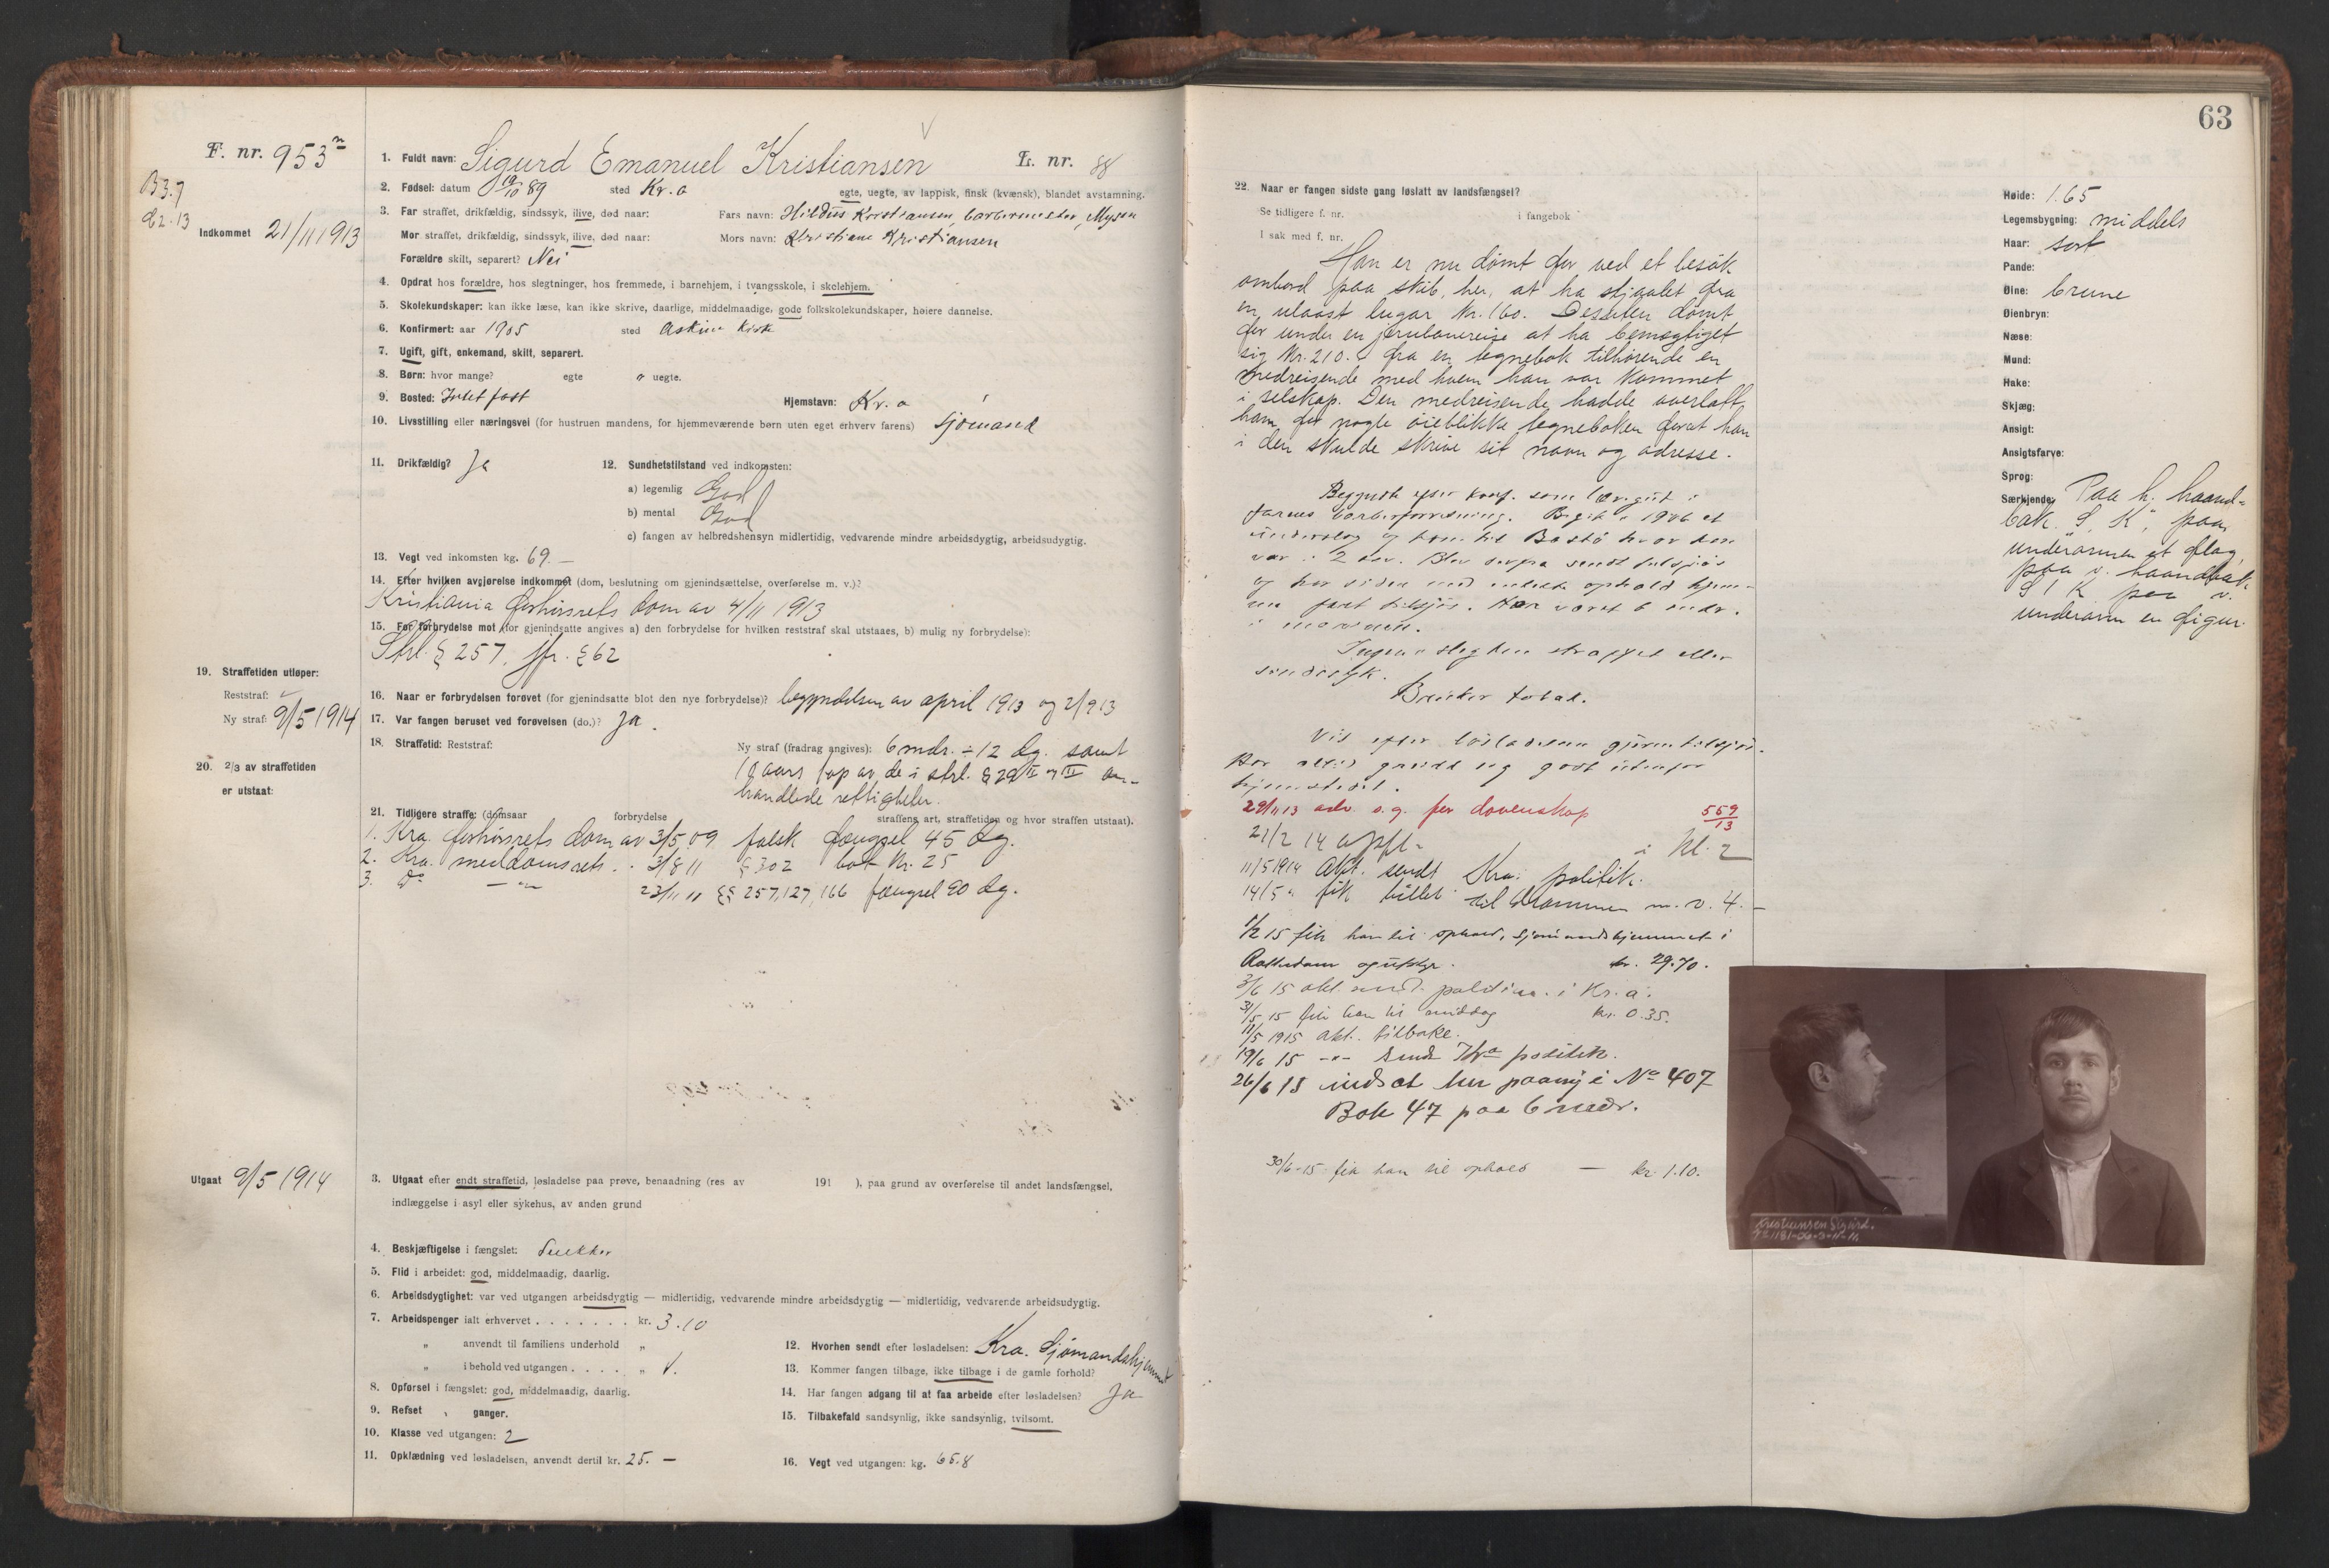 F. nr. 953
B3.7
Indkommet 21/11 1913
1. Fuldt navn: Sigurd Emanuel Kristiansen
L. nr. 88
2. Fødsel: datum 19/10 89 sted Kr.a
egte, uegte, av lappisk, finsk (kvænsk), blandet avstamning.
3. Far straffet, drikfældig, sindssyk, ilive, død naar: Fars navn: Kristiansen, barbermester, Mysen
Mor straffet, drikfældig, sindssyk, ilive, død naar: Mors navn: Kristiane Kristiansen
Forældre skilt, separert? Nei
4. Opdrat hos forældre, hos slegtninger, hos fremmede, i barnehjem, i tvangsskole, i skolehjem.
5. Skolekundskaper: kan ikke læse, kan ikke skrive, daarlige, middelmaadige, gode folkskolekundskaper, høiere dannelse.
6. Konfirmert: aar 1905 sted Askim Kirke
7. Ugift, gift, enkemand, skilt, separert.
8. Børn: hvor mange? egte o uegte.
9. Bosted: Intet fast Hjemstavn: Kr.a
10. Livsstilling eller næringsvei (for hustruen mandens, for hjemmeværende børn uten eget erhverv farens) sjømand
11. Drikfældig? Ja
12. Sundhetstilstand ved indkomsten:
a) legemlig God
b) mental God
c) fangen av helbredshensyn midlertidig, vedvarende mindre arbeidsdygtig, arbeidsudygtig.
13. Vegt ved inkomsten kg. 69.—
14. Efter hvilken avgjørelse indkommet (dom, beslutning om gjenindsættelse, overførelse m. v.)?
Kristiania forhørsrets dom av 4/11 1913
15. For forbrydelse mot (for gjenindsatte angives a) den forbrydelse for hvilken reststraf skal utstaaes, b) mulig ny forbrydelse):
Strl. § 257, jfr. § 62
16. Naar er forbrydelsen forøvet (for gjenindsatte blot den nye forbrydelse)? begyndelsen av april 1913 og 2/9 13
17. Var fangen beruset ved forøvelsen (do.)? Ja.
18. Straffetid: Reststraf:
Ny straf (fradrag angives): 6 mdr. ÷ 12 dg. samt
10 aars tap av de i strl. § 29 II og III om-
handlede rettigheter.
19. Straffetiden utløper:
Reststraf:
Ny straf: 9/5 1914
20. 2/3 av straffetiden
er utstaat:
21. Tidligere straffe: (domsaar forbrydelse straffens art, straffetiden og hvor straffen utstaat).
1. Kra. forhørsrets dom av 3/5 09 falsk fængsel 45 dg.
2. Kra. meddomsrets 3/8 11 § 302 bot Kr. 25
3. Do —"— 23/11 11 §§ 257, 127, 166 fængsel 90 dg.
Utgaat 9/5 1914
3. Utgaat efter endt straffetid, løsladelse paa prøve, benaadning (res av 191 ), paa grund av overførelse til andet landsfængsel,
indlæggelse i asyl eller sykehus, av anden grund
4. Beskjæftigelse i fængslet:
5. Flid i arbeidet: god, middelmaadig, daarlig.
6. Arbeidsdygtighet: var ved utgangen arbeidsdygtig — midlertidig, vedvarende mindre arbeidsdygtig — midlertidig, vedvarende arbeidsudygtig.
7. Arbeidspenger ialt erhvervet . . . . . . . kr. 3.10
" anvendt til familiens underhold "
" i behold ved utgangen . . . . "
8. Opførsel i fængslet: god, middelmaadig, daarlig.
9. Refset ganger.
10. Klasse ved utgangen: 2
11. Opklædning ved løsladelsen, anvendt dertil kr. 25.—
12. Hvorhen sendt efter løsladelsen: Kra. Sjømandshjemmet
13. Kommer fangen tilbage, ikke tilbage i de gamle forhold?
14. Har fangen adgang til at faa arbeide efter løsladelsen? Ja
15. Tilbakefald sandsynlig, ikke sandsynlig, tvilsomt.
16. Vegt ved utgangen: kg. 65.8
63
22. Naar er fangen sidste gang løslatt av landsfængsel?
Se tidligere f. nr. i fangebok
I sak med f. nr.
Han er nu dømt for ved et besøk
ombord paa skib, her, at ha stjaalet fra
en ulaast lugar Kr. 160. Desuten dømt
for under en jernbanereise at ha bemægtiget
sig Kr. 210.- fra en tegnebok tilhørende en
medreisende med hvem han var kommet
i selskap. Den medreisende hadde overlatt
ham for nogle øieblikke tegneboken forat han
i den skulde skrive sit navn og adresse.
Begyndte efter konf. som læregut i
farens barberforretning. Begik i 1906 et
underslag og kom til Bastø hvor han
var i 2 aar. Blev derfra sendt tilsjøs
og har siden med enkelte ophold hjem-
me fart tilsjøs. Har været 6 mdr.
i marinen.
Ingen i slegten straffet eller
sindssyk.
Bruker tobak.
Vil efter løsladelsen gjerne tilsjøs.
Har altid greidd sig godt utenfor
hjemstedet.
29/11 13 adv. o.g. for dovenskap 559/13
21/2 14 i kl. 2
11/5 1914 akt. sendt Kra. politik.
14/5 " fik billet til Drammen m. v. 4.—
1/2 15 fik han til ophold, sjømandshjemmet i
Rotterdam kr. 29.70.
3/6 15 akt. sendt politik. i Kr.a.
31/5 15 fik han til middag kr. 0.35.
11/5 1915 akt. tilbake.
19/6 15 —"— sendt Kra politik.
26/6 15 indsat her paany i No 407
Bok 47 paa 6 mdr.
30/6-15 fik han til ophold — kr. 1.10.
Høide: 1.65
Legemsbygning: middels
Haar: sort
Pande:
Øine: brune
Øienbryn:
Næse:
Mund:
Hake:
Skjæg:
Ansigt:
Ansigtsfarve:
Sprog:
Særkjende: Paa h. haand-
bak. S. K", paa
underarmen et flag,
paa v. haandbak
S I K paa v.
underarm en figur.
Kristiansen Sigurd.